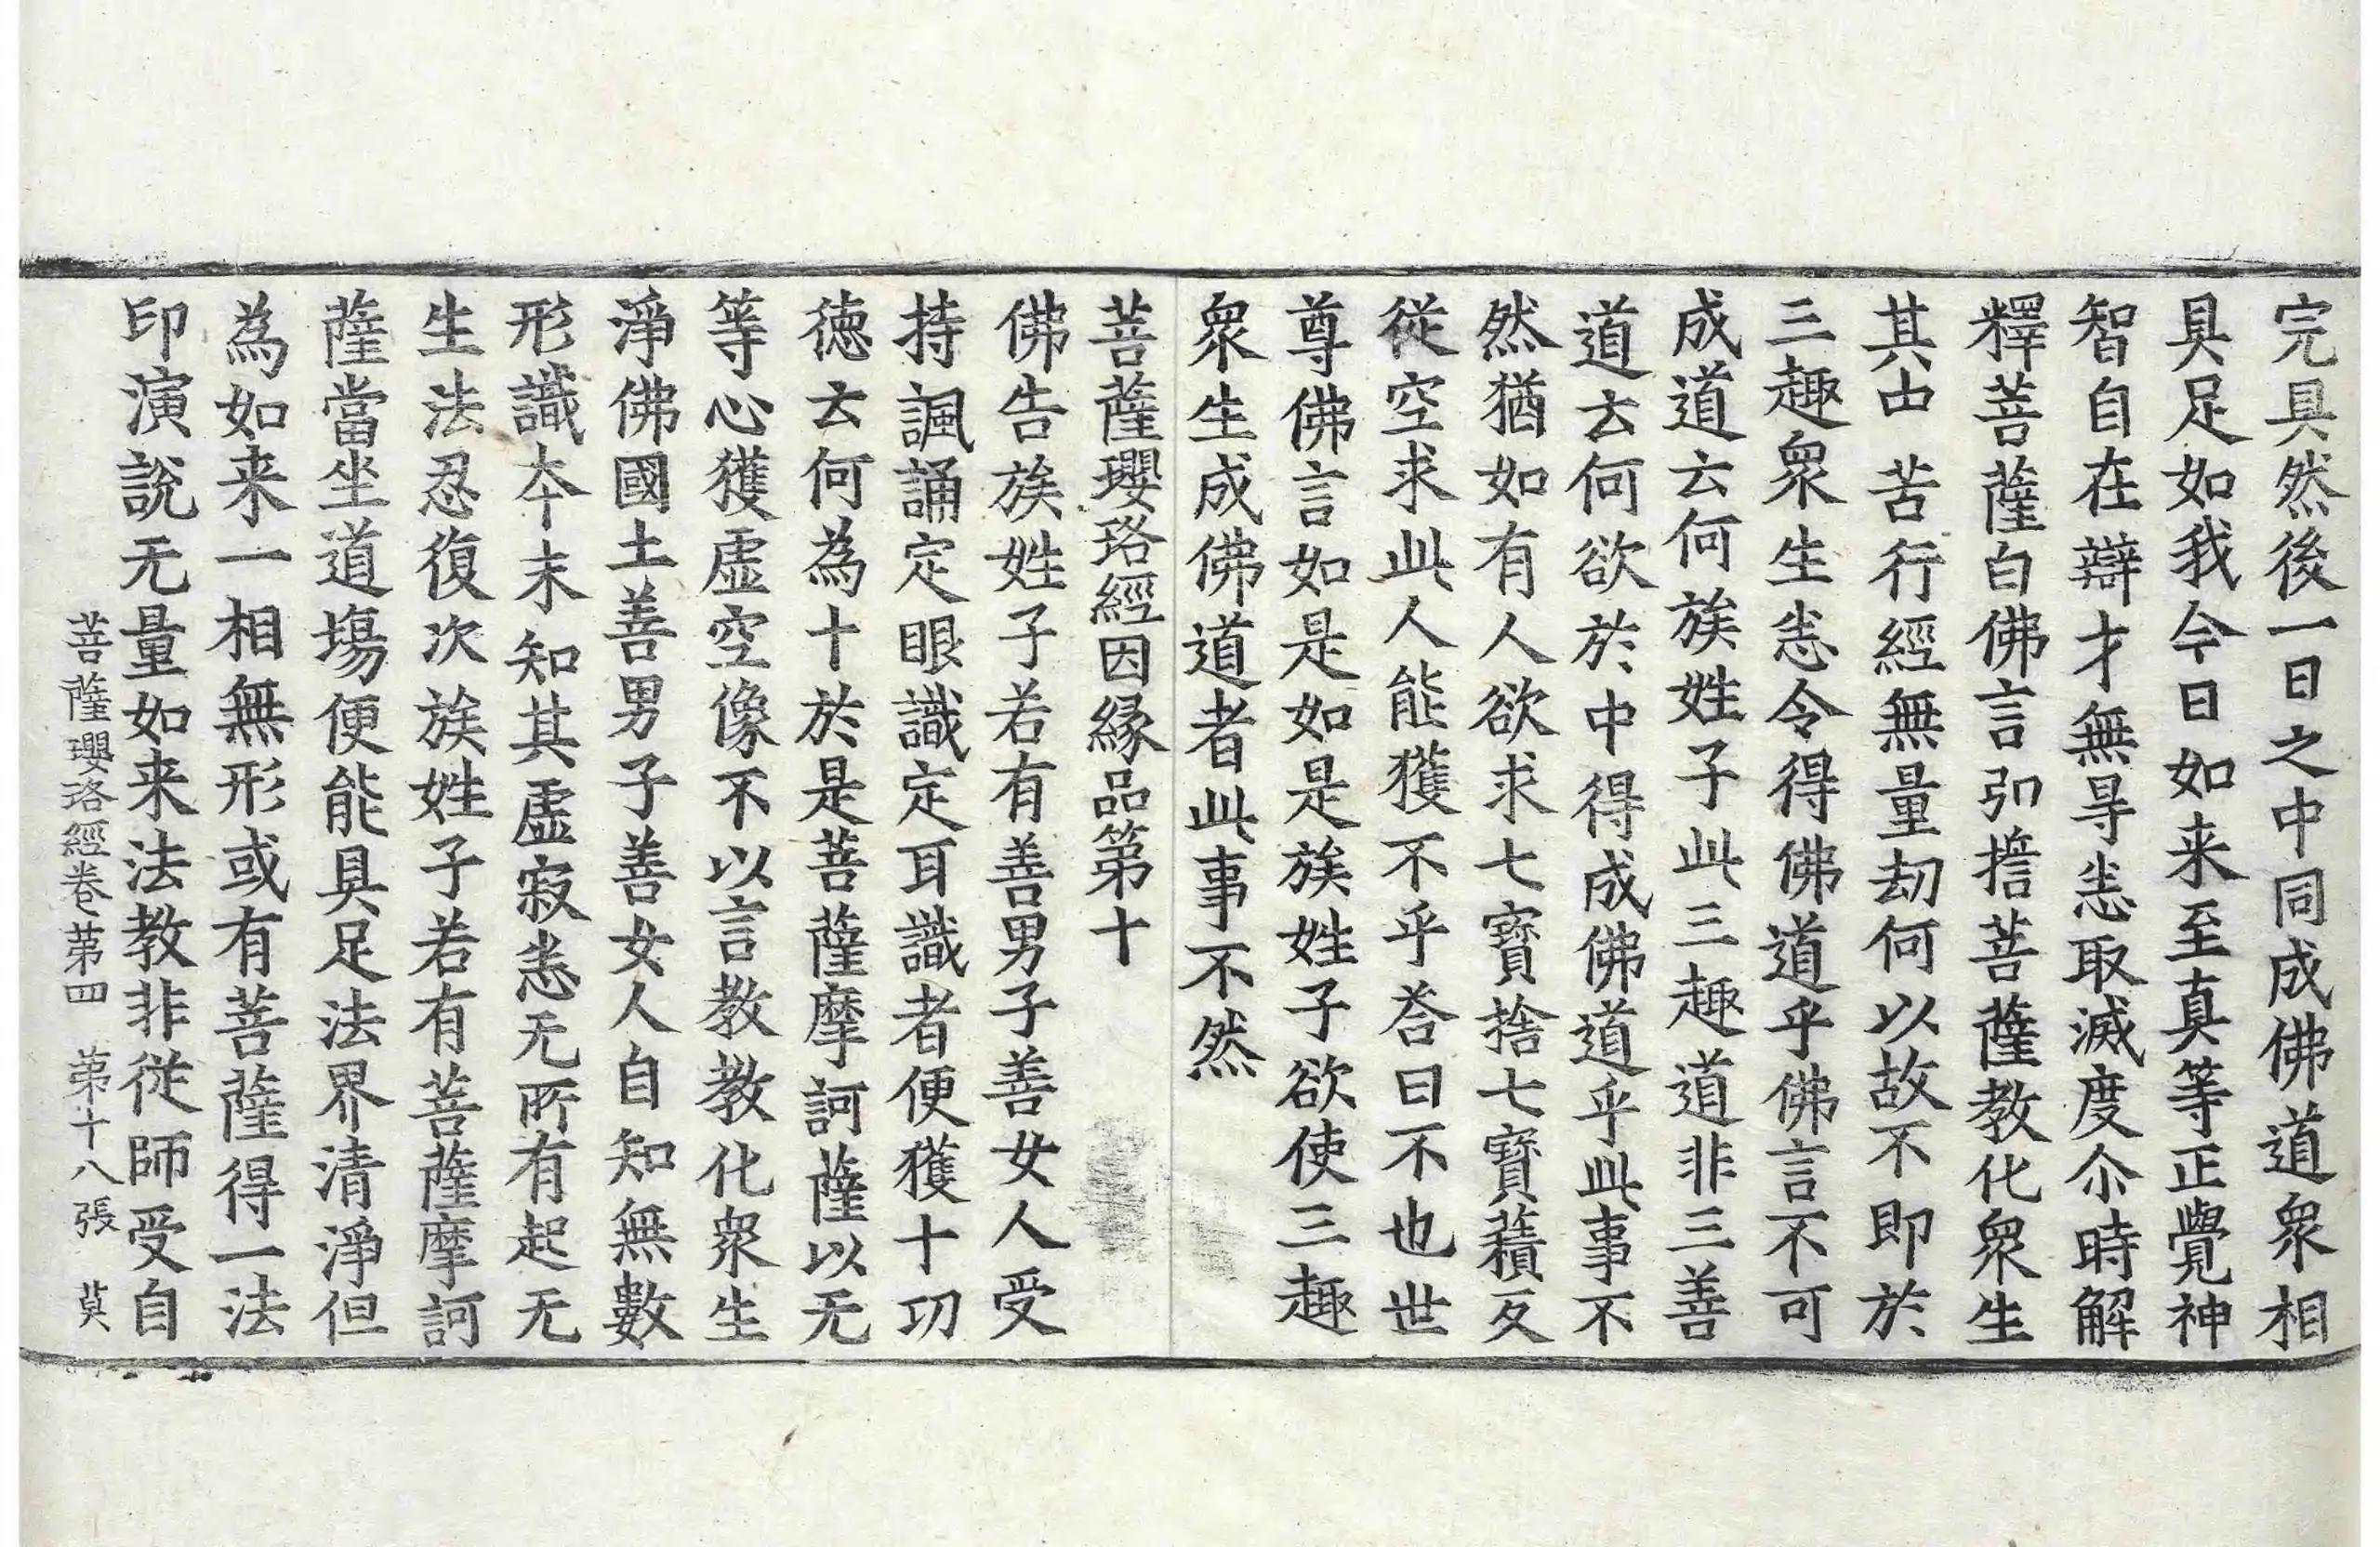 完具然後一日之中同成佛道衆相
具足如我今日如来至真等正覺神
智自在辯才無㝵恚取滅度尒時解
釋菩薩白佛言弘擔菩薩教化衆生
其由苦行經無量劫何以故不即於
三趣衆生恚令得佛道乎佛言不可
成道云何族姓子此三趣道非三善
道云何欲於中得成佛道乎此事不
然猶如有人欲求七寶捨七寶積反
從空求此人能獲不乎荅曰不也世
尊佛言如是如是族姓子欲使三趣
衆生成佛道者此事不然
菩薩瓔珞經因縁品第十
佛告族姓子若有善男子善女人受
持諷誦定眼識定耳識者便獲十功
德云何為十於是菩薩摩訶薩以无
等心獲虛空像不以言教教化衆生
淨佛國土善男子善女人自知無數
形識夲末知其虛寂恚无所有起无
生法忍復次族姓子若有菩薩摩訶
薩當坐道塲便能具足法界清淨但
為如来一相無形或有菩薩得一法
印演說无量如来法教非從師受自
菩薩瓔珞經卷第四 第十八張 莫